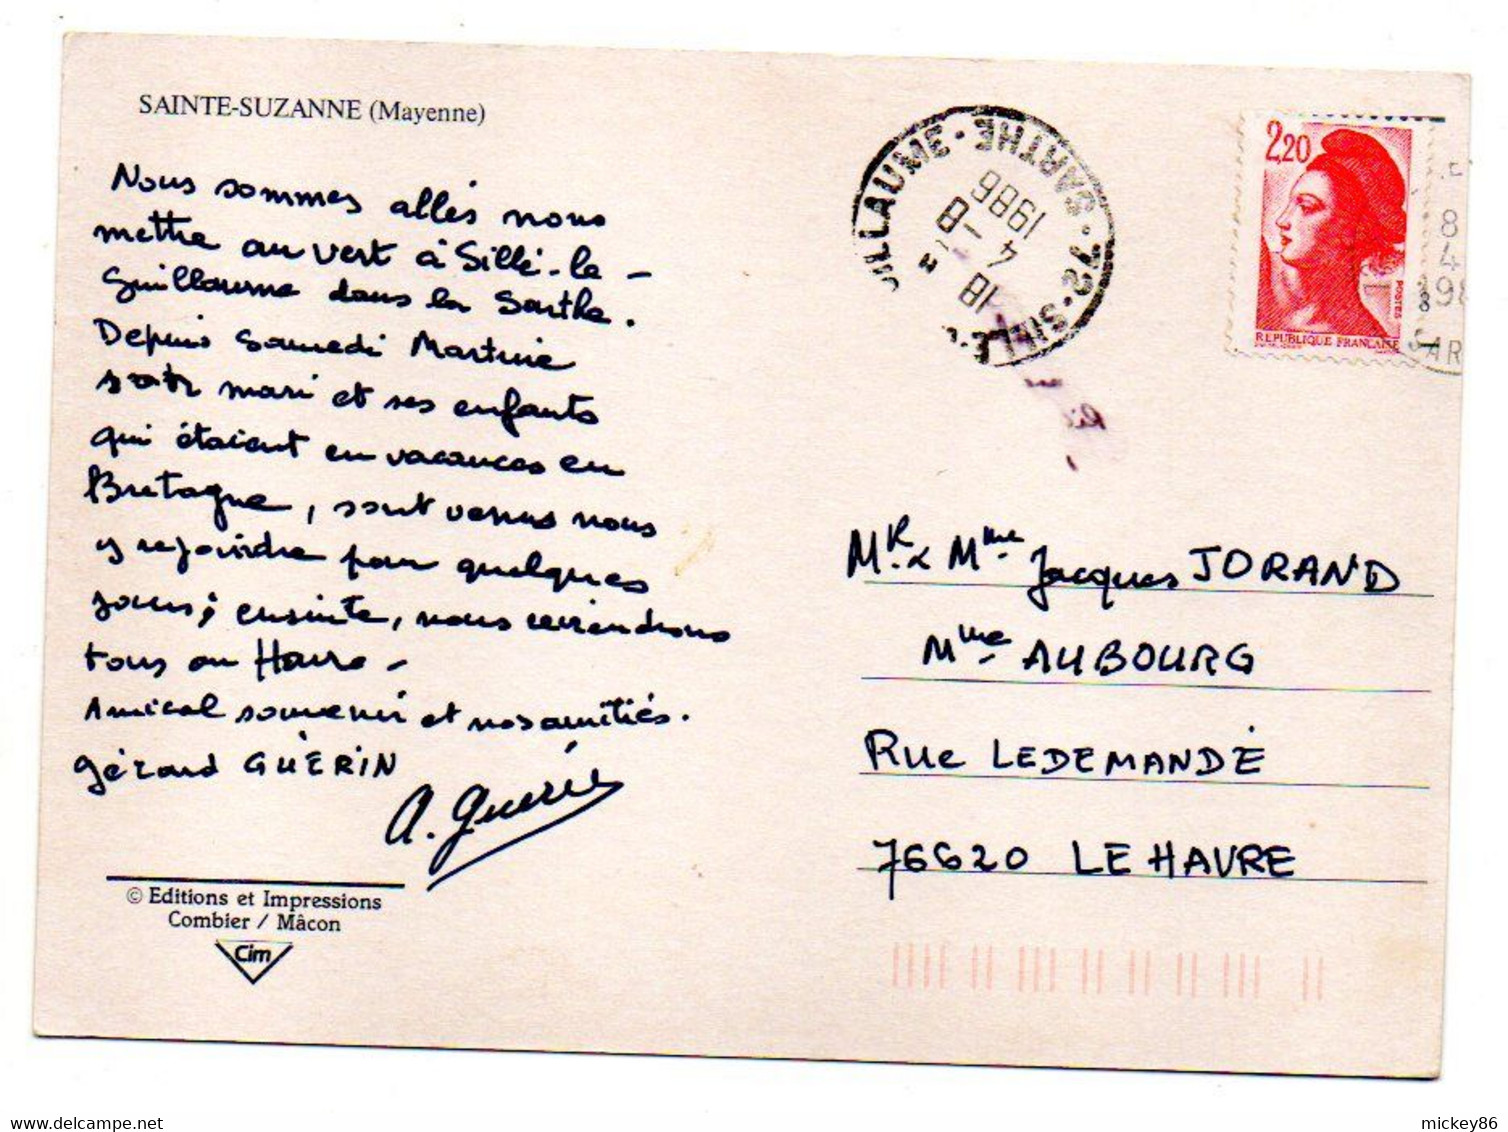 SAINTE-SUZANNE (Mayenne)
Nous sommes allés nous
mettre au vert à Sillé-le-
Guillaume dans la Sarthe.
Depuis Samedi Martine
son mari et ses enfants
qui étaient en vacances en
Bretagne, sont venus nous
y rejoindre pour quelques
jours; ensuite, nous reviendrons
tous au Havre -
Amical souvenir et nos amitiés.
Gérard GUÉRIN
A. Guérin
© Editions et Impressions
Combier / Mâcon
Cim
72-SILLE
ILLAUME - SARTHE
18
4 - 8
1986
2,20
POSTES
REPUBLIQUE FRANÇAISE
8
4
198
SAR
Mr & Mme Jacques JORAND
Mme AUBOURG
RUE LEDEMANDÉ
76620 LE HAVRE
delcampe.net
mickey86